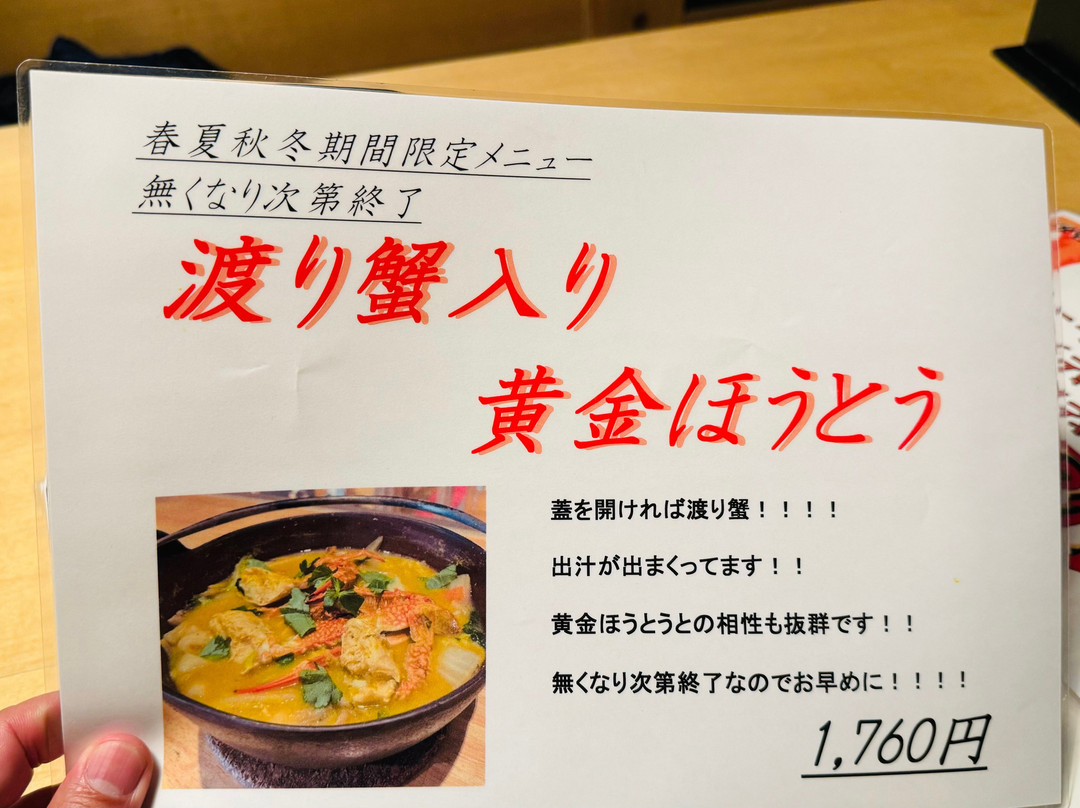 春夏秋冬期間限定メニュー
無くなり次第終了
渡り蟹入り
黄金ほうとう
蓋を開ければ渡り蟹！！！！
出汁が出まくってます！！
黄金ほうとうとの相性も抜群です！！
無くなり次第終了なのでお早めに！！！！
1,760円